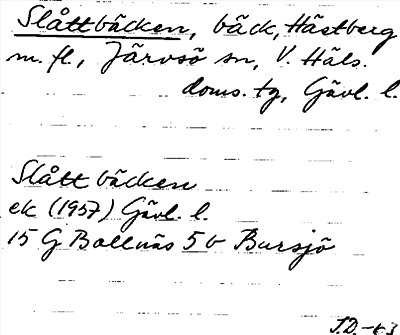 Slåttbäcken, bäck, Hästberg
m. fl., Järvsö sn, V. Häls.
doms. tg, Gävl. l.
Slåttbäcken
ek (1957) Gävl. l.
15 G Bollnäs 5 b Bursjö
J.D. -63